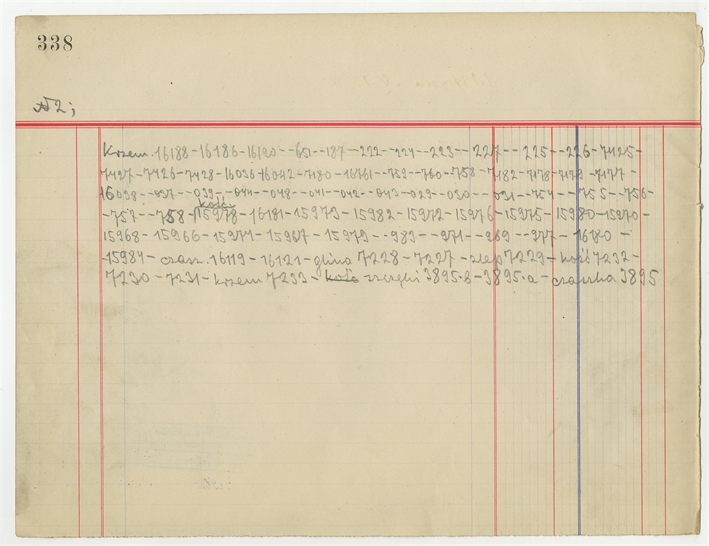 338
№ 2;
Krzem. 16188-16186-16190--651--187--222--224--223--227--225--226-7425-
7427-7426-7428-16036-16042-7180-16761-759-760-758-7182-7178-7179-7177-
16038--037--039--044--048--041--042--043-029--030--031-754--755-756-
-757--758-15978-16181-15973-15982-15972-15976-15975-15980-15970-
kość
15968-15966-15971-15967-15979--983--971-969--977-16180-
-15984-czasz. 16119-16121-glina 7228-7227-zlep 7229-kość 7232-
7230-7231-krzem 7233- szczęki 3895.b-3895.a-czaszka 3895